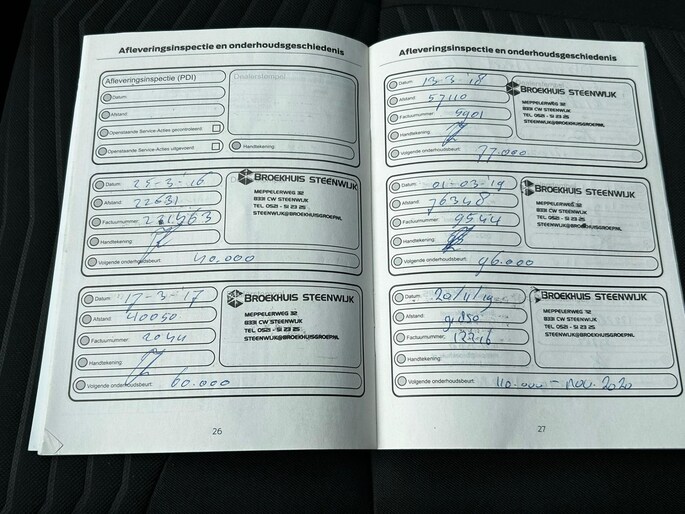 Afleveringsinspectie en onderhoudsgeschiedenis
Afleveringsinspectie (PDI)
Dealerstempel
Datum:
Afstand:
Openstaande Service-Acties gecontroleerd:
Openstaande Service-Acties uitgevoerd:
Handtekening:
Datum: 25-3-'16
Afstand: 22631
Factuurnummer:
Handtekening:
Volgende onderhoudsbeurt: 40,000
BROEKHUIS STEENWIJK
MEPPELERWEG 32
8331 CW STEENWIJK
TEL 0521 - 51 23 25
STEENWIJK@BROEKHUISGROEP.NL
Datum: 17-3-'17
Afstand: 40050
Factuurnummer: 2044
Handtekening:
Volgende onderhoudsbeurt: 60.000
BROEKHUIS STEENWIJK
MEPPELERWEG 32
8331 CW STEENWIJK
TEL 0521 - 51 23 25
STEENWIJK@BROEKHUISGROEP.NL
26
Afleveringsinspectie en onderhoudsgeschiedenis
Datum: 13-3-'18
Afstand: 57110
Factuurnummer: 5901
Handtekening:
Volgende onderhoudsbeurt: 77.000
BROEKHUIS STEENWIJK
MEPPELERWEG 32
8331 CW STEENWIJK
TEL 0521 - 51 23 25
STEENWIJK@BROEKHUISGROEP.NL
Datum: 01-03-'19
Afstand: 76348
Factuurnummer: 9544
Handtekening:
Volgende onderhoudsbeurt: 96.000
BROEKHUIS STEENWIJK
MEPPELERWEG 32
8331 CW STEENWIJK
TEL 0521 - 51 23 25
STEENWIJK@BROEKHUISGROEP.NL
Datum: 20/11/19
Afstand:
Factuurnummer: 12216
Handtekening:
Volgende onderhoudsbeurt: 110.000 - nov. 2020
BROEKHUIS STEENWIJK
MEPPELERWEG 32
8331 CW STEENWIJK
TEL 0521 - 51 23 25
STEENWIJK@BROEKHUISGROEP.NL
27